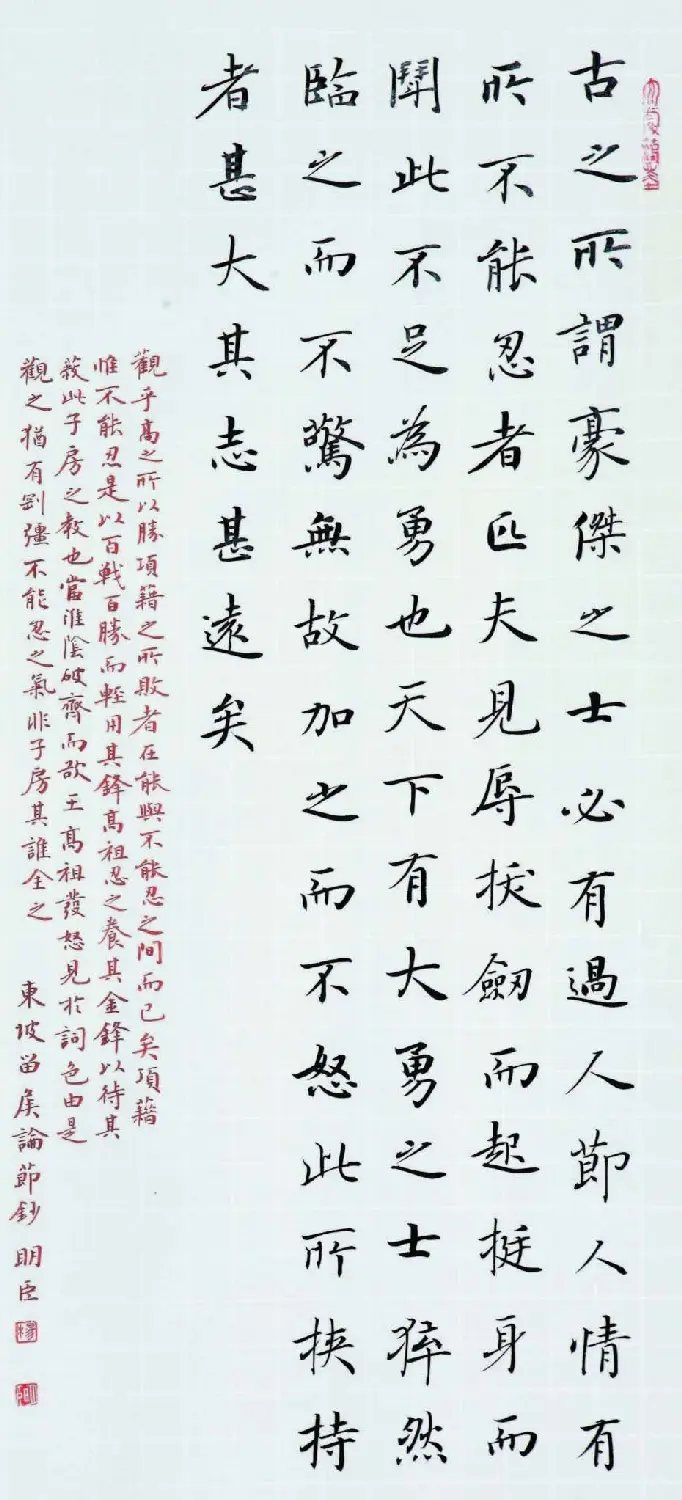 古之所謂豪傑之士必有過人節人情有
所不能忍者匹夫見辱拔劒而起挺身而
鬭此不足為勇也天下有大勇之士猝然
臨之而不驚無故加之而不怒此所挾持
者甚大其志甚遠矣
觀乎高之所以勝項籍之所敗者在能與不能忍之間而已矣項籍
惟不能忍是以百戰百勝而輕用其鋒高祖忍之養其全鋒以待其
弊此子房之教也當淮陰破齊而欲王高祖發怒見於詞色由是
觀之猶有剛彊不能忍之氣非子房其誰全之
東坡留侯論節鈔 明臣